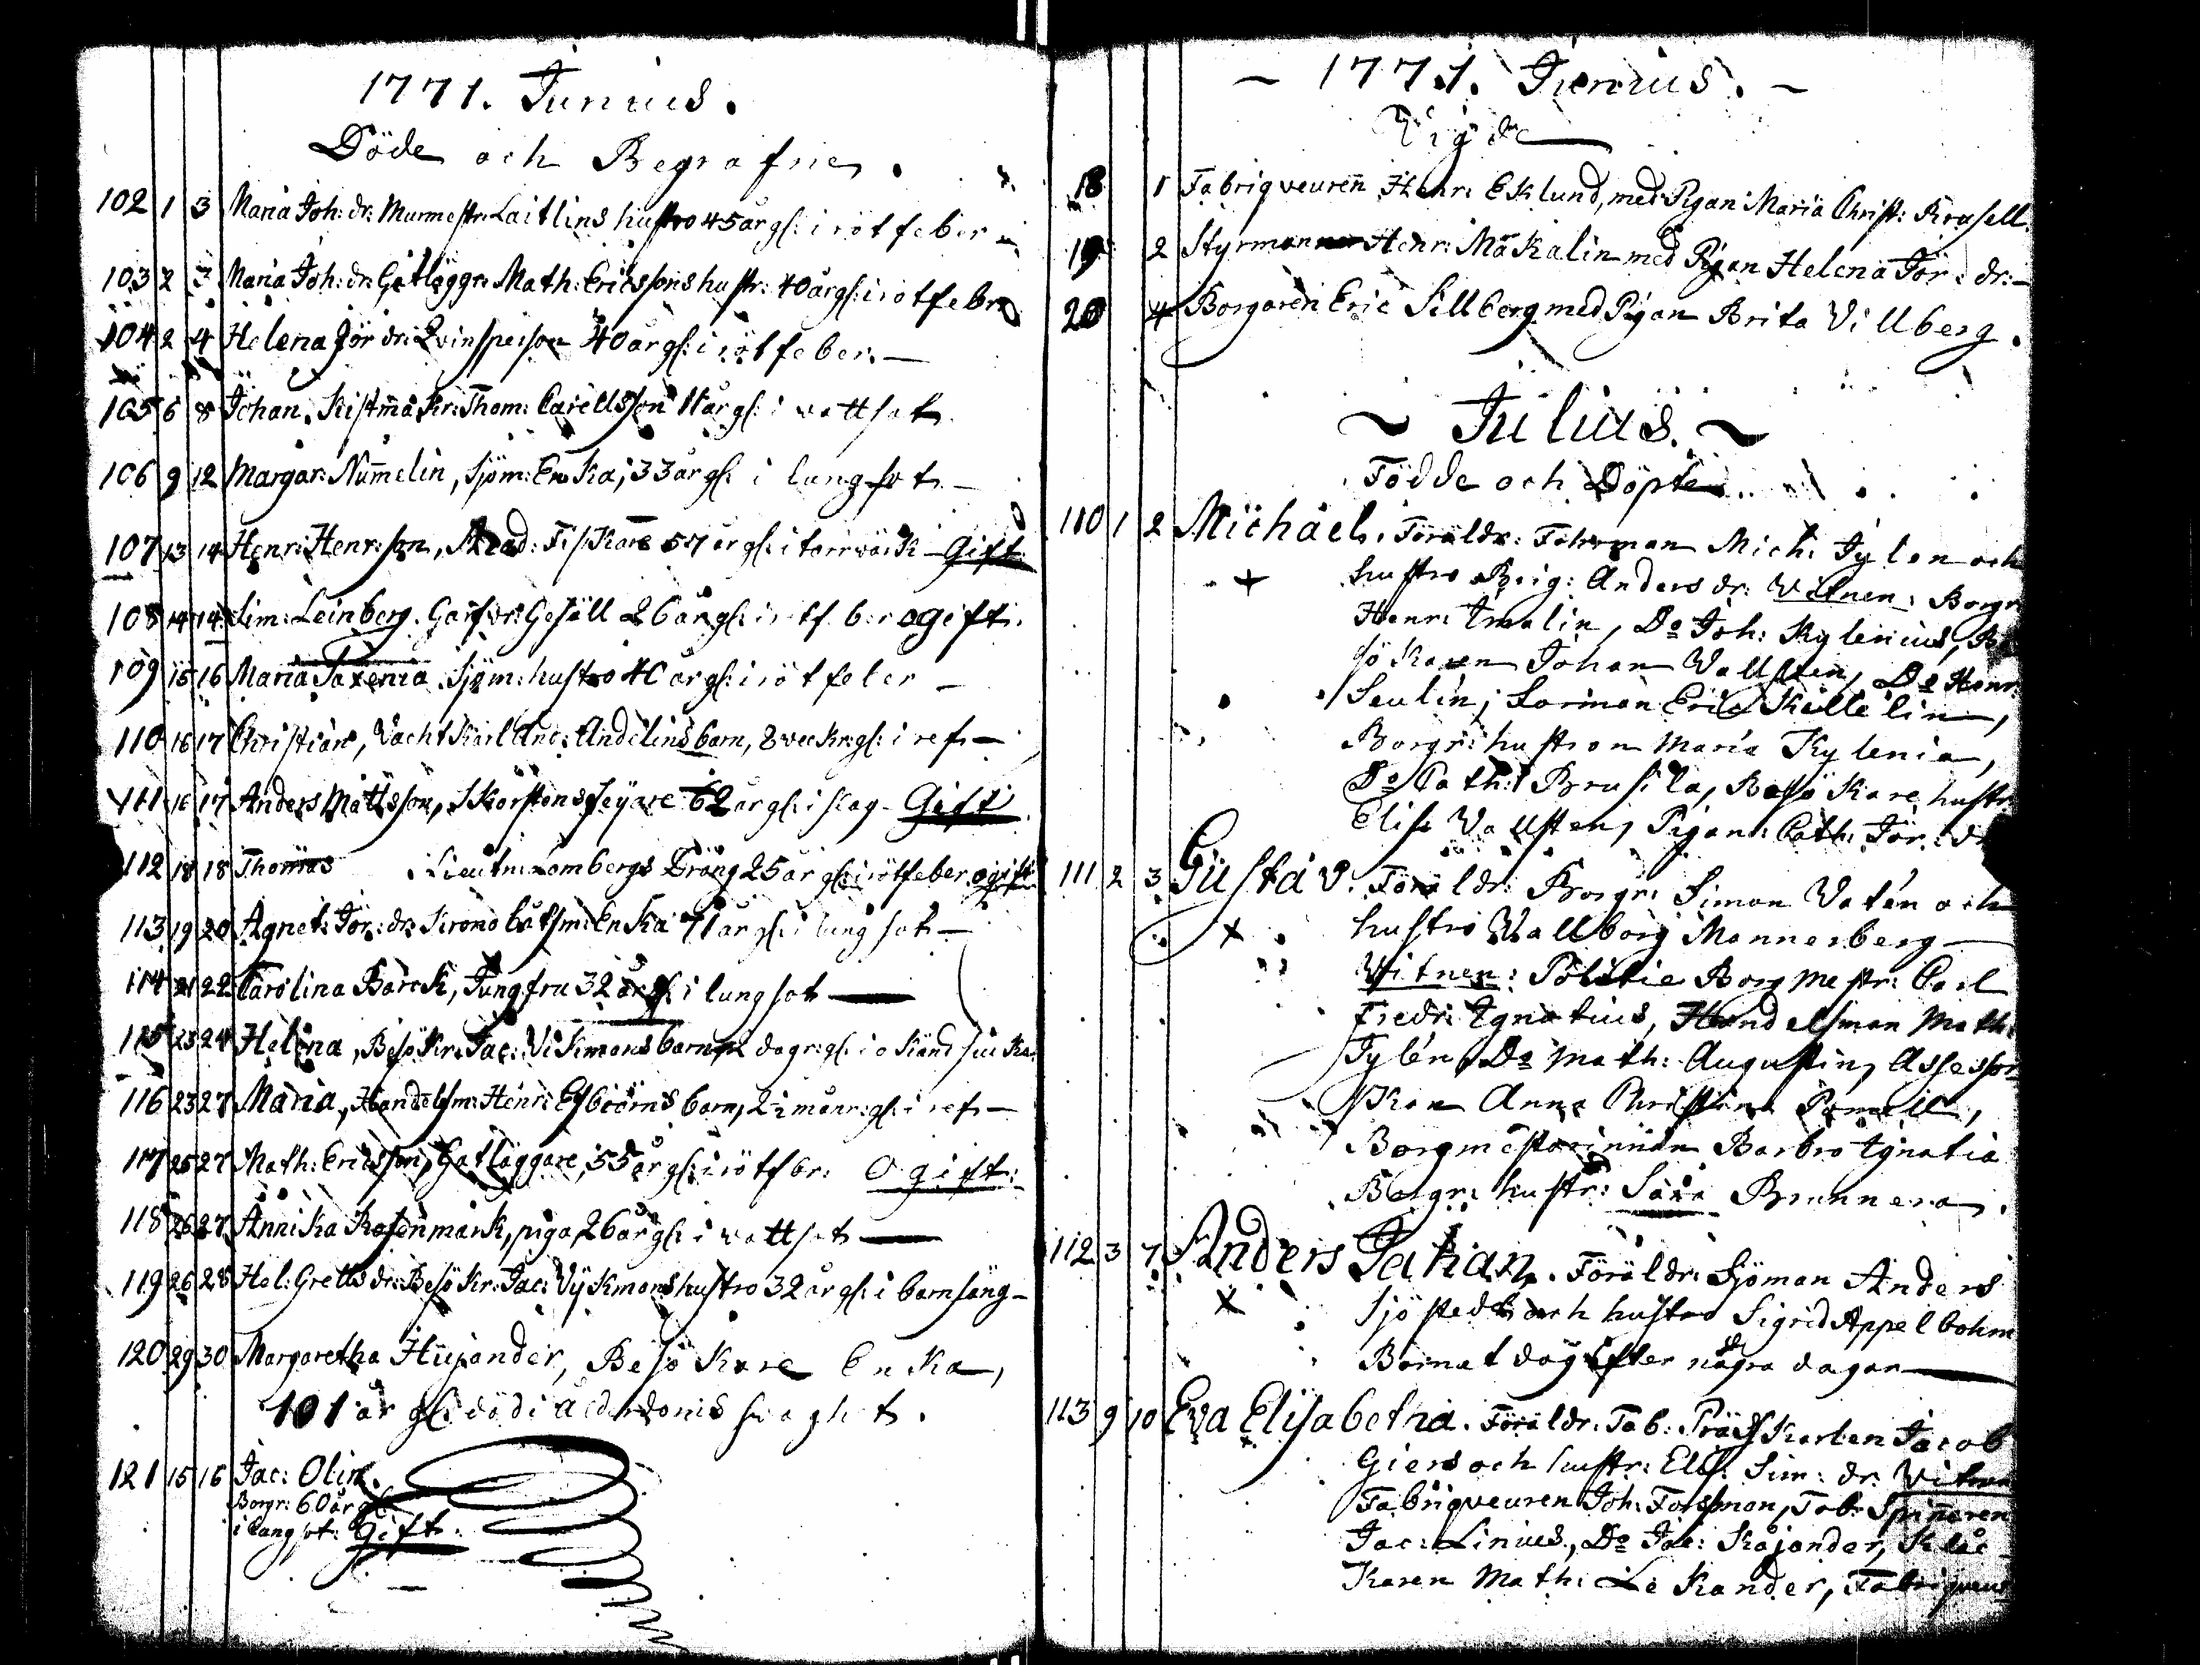 1771. Junius.
Döde och Begrafne.
102 1 3 Maria Joh: dr: Murmestr: Laitlins hustro 45 år gl: i rötfeber
103 2 3 Maria Joh: dr: Gatläggr: Math: Ericssons hustr: 40 år gl: i rötfebr
104 2 4 Helena Jör: dr: Qvinsperson 40 år gl: i rötfeber.
105 6 8 Johan. Kistmakr: Thom: Carellsson 11 år gl: i vattsot
106 9 12 Margar: Num̄elin, Sjöm: Enka, 33 år gl: i lungsot
107 13 14 Henr: Henr:son, Acad: Fiskare 57 år gl: i torrvärk - Gift:
108 14 14 Sim: Leinberg. Garfvr: Gesäll 26 år gl: i rötf.ber ogift.
109 15 16 Maria Paxenia. Sjöm: hustro 40 år gl: i rötfeber
110 16 17 Christian, Vachtkarl And: Andelins barn, 8 veckr gl: i ref:
111 16 17 Anders Mattsson, Skorstensfeyare 62 år gl: i slag - Gift
112 18 18 Thomas Lieutn: Lombergs Dräng 25 år gl: i rötfeber ogift
113 19 20 Agnet: Jör: dr: Krono båtsm: Enka 71 år gl: i lungsot
114 21 22 Carolina Barck, Jungfru 32 år gl: i lungsot
115 23 24 Helena, Besökr: Jac: Vikmans barn, 2 dagr: gl: i okänd siuka
116 23 27 Maria, Handelsm: Henr: Esbiörns barn, 2½ månr: gl: i ref:
117 25 27 Math: Ericsson, Gatläggare, 55 år gl: i rötfbr: Ogift:
118 26 27 Annika Rosenmark, piga, 26 år gl: i vattsot
119 26 28 Hel: Grells dr: Besökr: Jac: Vykmans hustro 32 år gl: i barnsäng
120 29 30 Margaretha Hüjander, Besökare Enka,
101 år gl: död i ålderdoms svaghet.
121 15 16 Jac: Olin.
Borgr: 60 år gl:
i lungsot: Gift:
1771. Junius.
Vigde
18 1 Fabriqveuren̄ Henr: Eklund, med Pigan Maria Christ: Krusell.
19 2 Styrman Henr: Måkalin med Pigan Helena Jör: dr:
20 4 Borgaren Eric Sillberg med Pigan Brita Villberg.
Julius.
Födde och Döpte.
110 1 2 Michael. Föräldr: Fohrman Mich: Tylen och
hustro Brig: Anders dr: Vitnen: Borgr:
Henr: Imalin, Do Joh: Kylenius, Be
sökaren Johan Vallsten, Do Henr:
Seulin, Sorman Eric Kellelin,
Borgr: hustron Maria Kylenia,
Do Cath: Brusila, Besökare hustr:
Elis: Vallsten, Pigan: Cath: Jör: dr
111 2 3 Gustav. Föräldr: Borgr: Simon Vatén och
hustro Wallborg Mannerberg
Vitnen: Politie Borgmestr: Carl
Fredr: Ignatius, Handelsman Math:
Tylén, Do Math: Augustin, Assessor
skan Anna Christina Pomell,
Borgmestarinnan Barbro Ignatia
Borgr: hustr: Sara Brunnera.
112 3 7 Anders Johan. Föräldr: Sjöman Anders
Sjöstedt och hustro Sigrid Appelbohm
Barnet dog efter några dagar
113 9 10 Eva Elisabetha. Föräldr: Fab: Präskarlen Jacob
Giers och hustr: Elis: Sim: dr: Vitnen
Fabriqveuren Joh: Forssman, Fab: Spin̄aren
Jac: Linius, Do Jac: Kajander, Klåc-
karen Math: Lekander, Fabriqveus